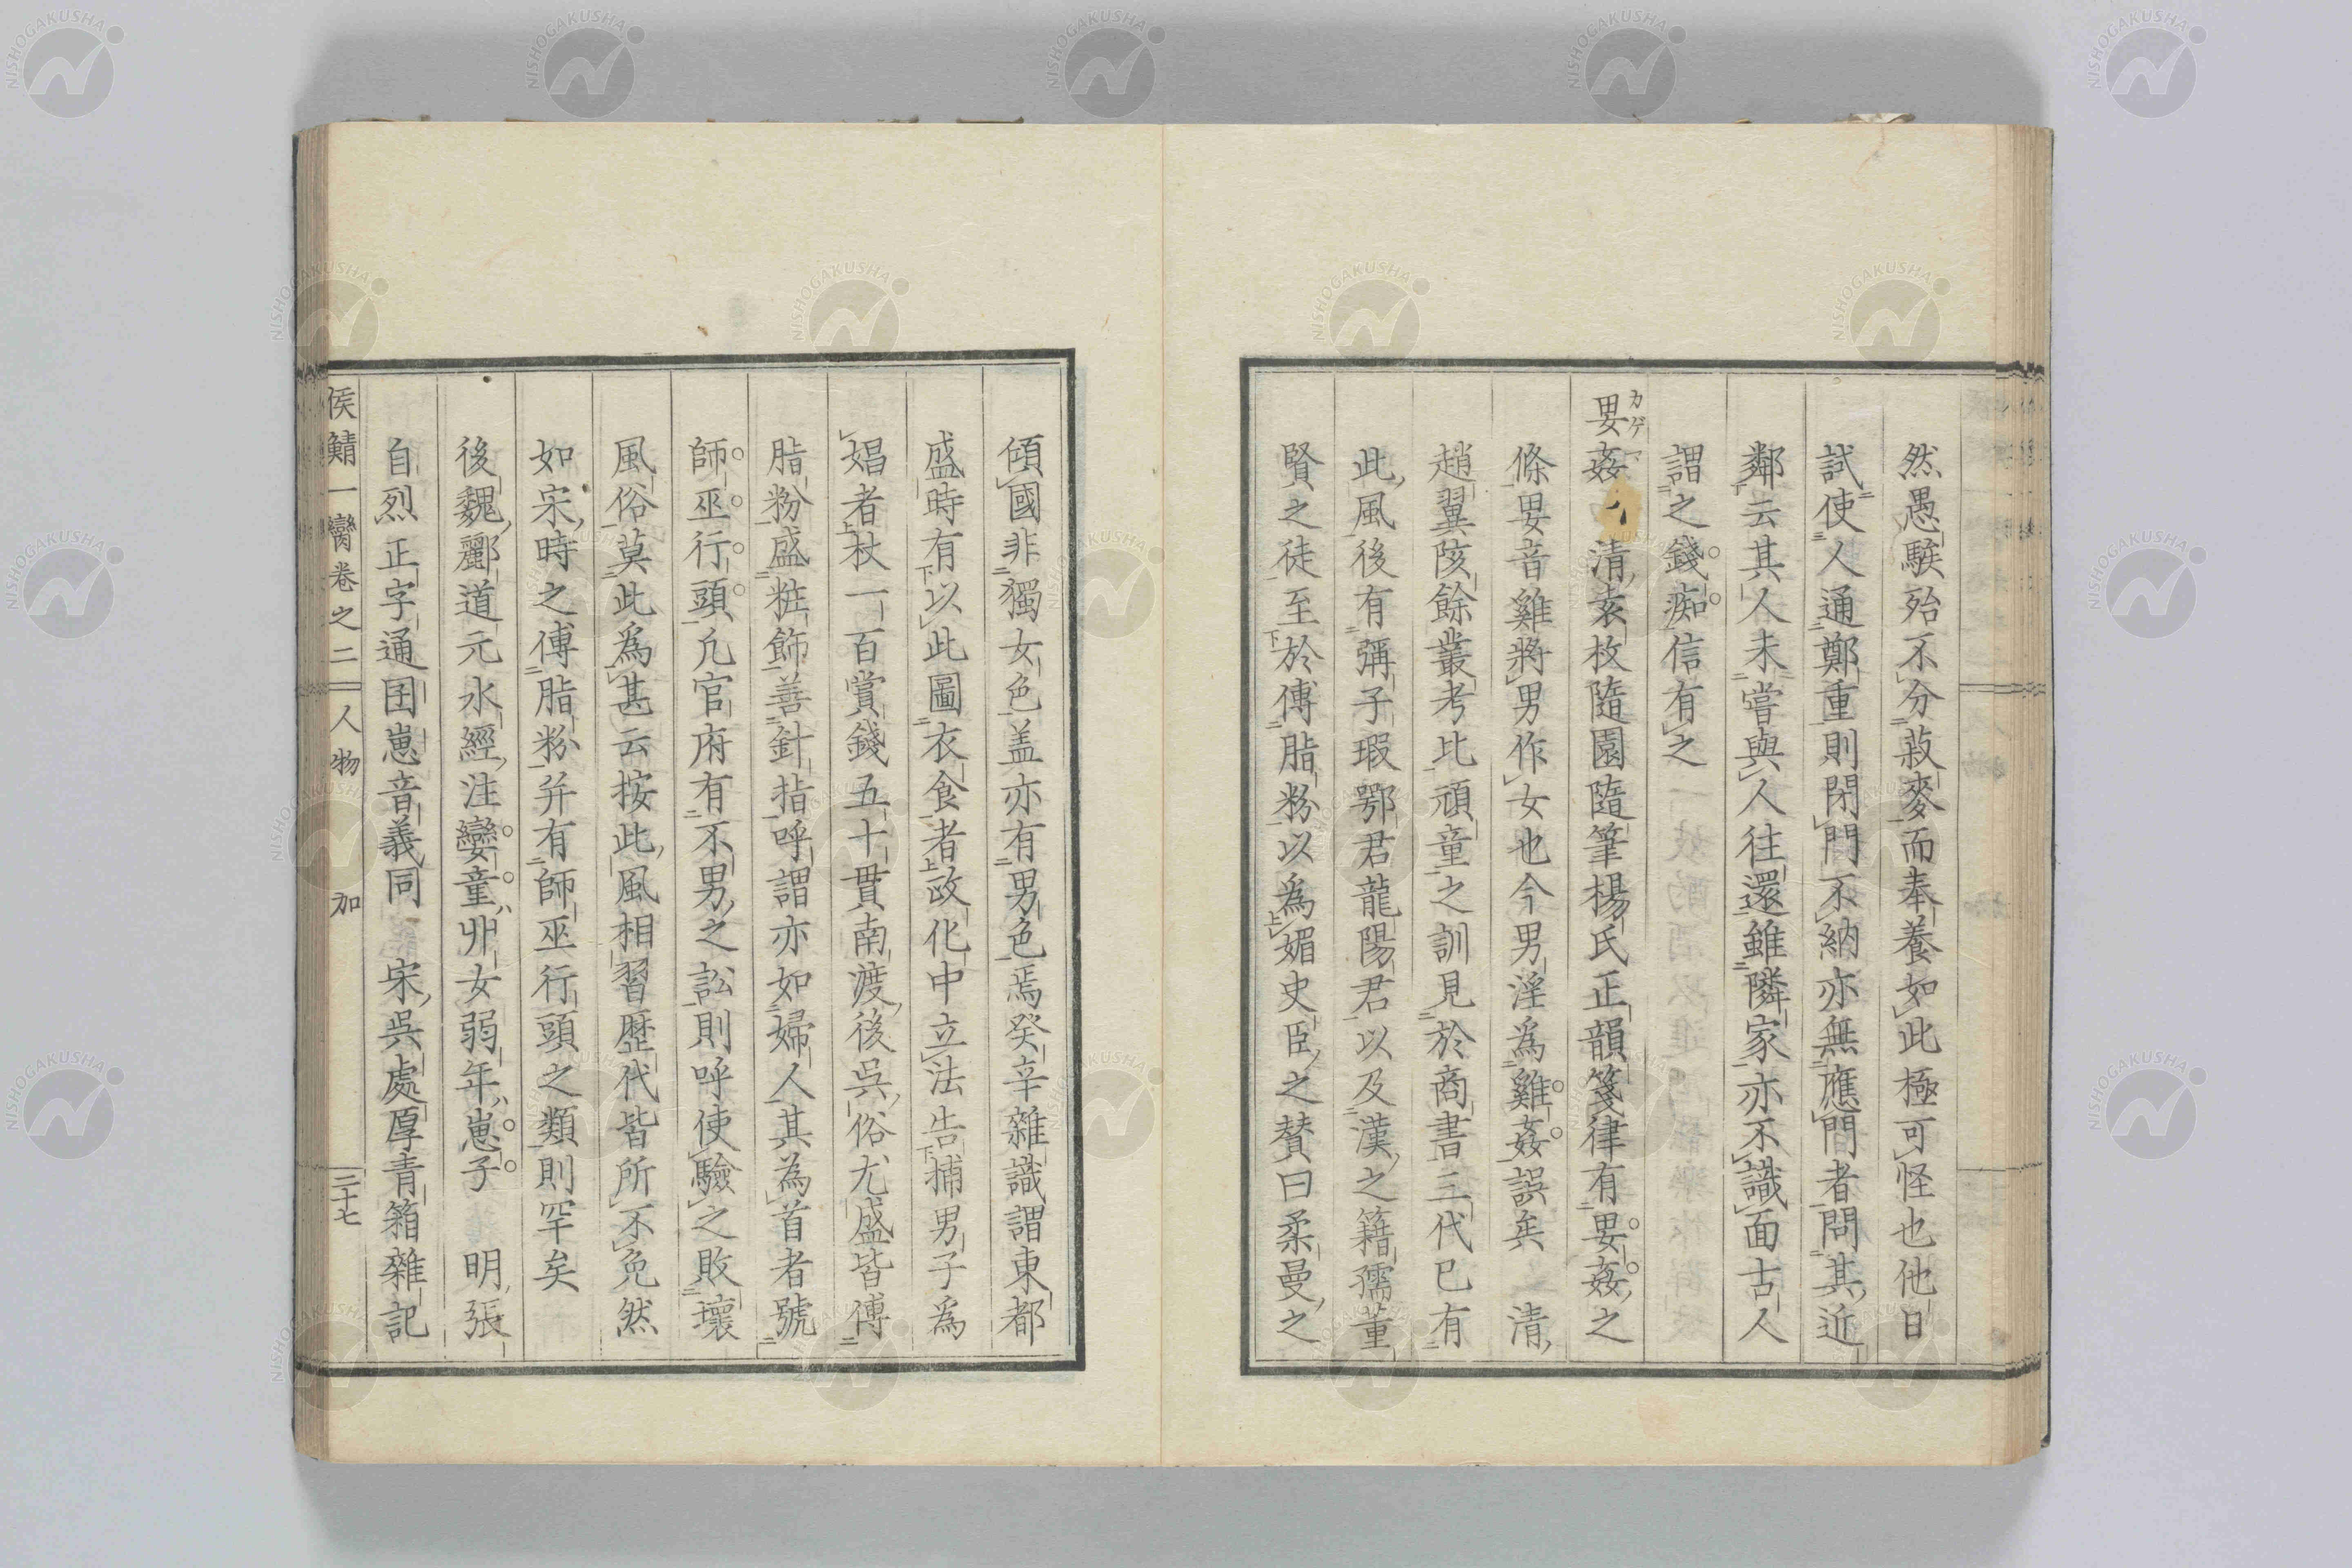 然愚騃殆不分菽麥而奉養如此極可怪也他日
試使人通鄭重則閉門不納亦無應門者問其近
鄰云其人未嘗與人往還雖隣家亦不識面古人
謂之錢痴信有之
カゲマ
㚻姦 清袁枚隨園隨筆楊氏正韻箋律有㚻姦之
條㚻音雞將男作女也今男淫為雞姦誤矣 清
趙翼陔餘叢考比頑童之訓見於商書三代已有
此風後有彌子瑕鄂君龍陽君以及漢之籍孺董
賢之徒至於傅脂粉以為媚史臣之贊曰柔曼之
傾國非獨女色盖亦有男色焉癸辛雜識謂東都
盛時有以此圖衣食者政化中立法告捕男子為
娼者杖一百賞錢五十貫南渡後吳俗尤盛皆傅
脂粉盛粧飾善針指呼謂亦如婦人其為首者號
師巫行頭凡官府有不男之訟則呼使驗之敗壞
風俗莫此為甚云按此風相習歷代皆所不免然
如宋時之傅脂粉并有師巫行頭之類則罕矣
後魏酈道元水經注孌童丱女弱年崽子 明張
自烈正字通囝崽音義同 宋吳處厚青箱雜記
侯鯖一臠卷之二 人物 加 三十七
NISHOGAKUSHA